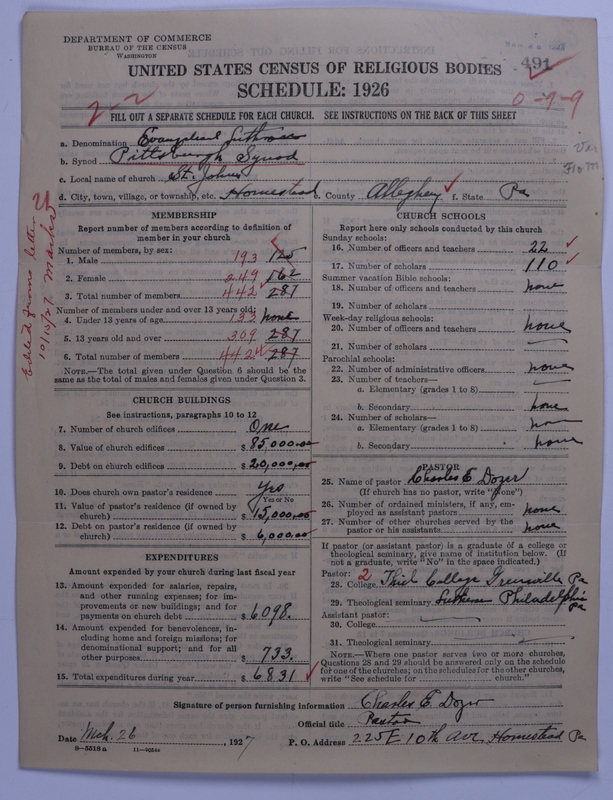 DEPARTMENT OF COMMERCE
BUREAU OF THE CENSUS
WASHINGTON
491
UNITED STATES CENSUS OF RELIGIOUS BODIES
SCHEDULE: 1926
2-2
0-9-9
FILL OUT A SEPARATE SCHEDULE FOR EACH CHURCH. SEE INSTRUCTIONS ON THE BACK OF THIS SHEET
a. Denomination Evangelical Lutheran
b. Synod Pittsburgh Synod
c. Local name of church St. Johns
d. City, town, village, or township, etc. Homestead e. County Allegheny f. State Pa
Edited from letter 10/15/27
MEMBERSHIP
Report number of members according to definition of
member in your church
Number of members, by sex:
1. Male 193 125
2. Female 249 162
3. Total number of members 442 287
Number of members under and over 13 years old:
4. Under 13 years of age 133 none
5. 13 years old and over 309 287
6. Total number of members 442 287
NOTE.—The total given under Question 6 should be the
same as the total of males and females given under Question 3.
CHURCH BUILDINGS
See instructions, paragraphs 10 to 12
7. Number of church edifices One
8. Value of church edifices $ 85,000.00
9. Debt on church edifices $ 20,000.00
10. Does church own pastor's residence Yes
Yes or No
11. Value of pastor's residence (if owned by
church) $ 15,000.00
12. Debt on pastor's residence (if owned by
church) $ 6,000.00
EXPENDITURES
Amount expended by your church during last fiscal year
13. Amount expended for salaries, repairs,
and other running expenses; for im-
provements or new buildings; and for
payments on church debt $ 6098.
14. Amount expended for benevolences, in-
cluding home and foreign missions; for
denominational support; and for all
other purposes $ 733.
15. Total expenditures during year $ 6831
CHURCH SCHOOLS
Report here only schools conducted by this church
Sunday schools:
16. Number of officers and teachers 22
17. Number of scholars 110
Summer vacation Bible schools:
18. Number of officers and teachers none
19. Number of scholars
Week-day religious schools:
20. Number of officers and teachers none
21. Number of scholars
Parochial schools:
22. Number of administrative officers none
23. Number of teachers—
a. Elementary (grades 1 to 8)
b. Secondary none
24. Number of scholars—
a. Elementary (grades 1 to 8) none
b. Secondary none
PASTOR
25. Name of pastor Charles E Dozer
(If church has no pastor, write "none")
26. Number of ordained ministers, if any, em-
ployed as assistant pastors none
27. Number of other churches served by the
pastor or his assistants none
If pastor (or assistant pastor) is a graduate of a college or
theological seminary, give name of institution below. (If
not a graduate, write "No" in the space indicated.)
Pastor: 2
28. College Thiel College Greenville Pa
29. Theological seminary Lutheran Philadelphia Pa
Assistant pastor:
30. College
31. Theological seminary
NOTE.—Where one pastor serves two or more churches,
Questions 28 and 29 should be answered only on the schedule
for one of the churches; on the schedules for the other churches,
write "See schedule for church."
Signature of person furnishing information Charles E. Dozer
Official title Pastor
Date Mch. 26, 1927 P. O. Address 225 E 10th Ave, Homestead Pa
8-5518a